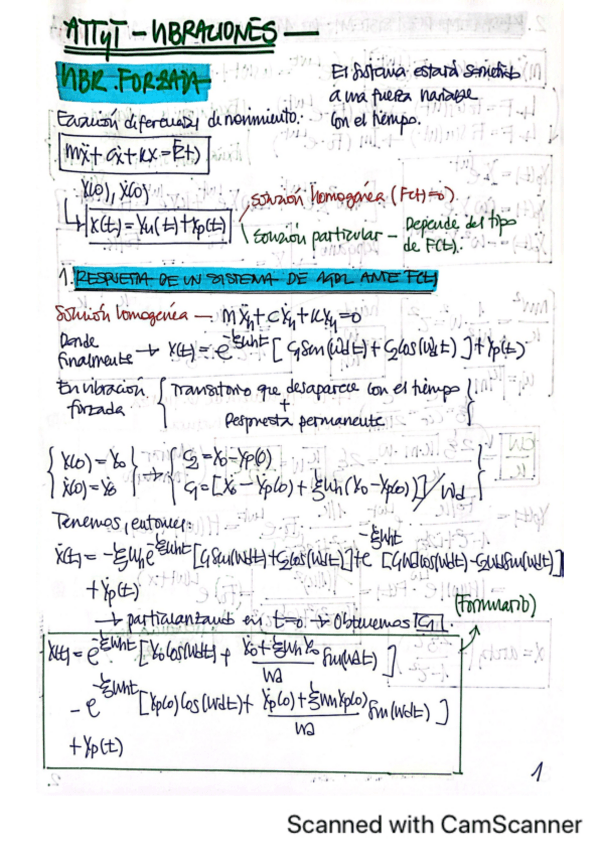 ATTyT - VIBRACIONES —
VIBR. FORZADA
El sistema estará sometido
a una fuerza variable
con el tiempo.
Ecuación diferencial de movimiento:
mẍ + cẋ + kx = F(t)
x(0), ẋ(0)
x(t) = xh(t) + xp(t)
Solución homogénea (F(t)=0).
Solución particular - Depende del tipo
de F(t).
1. RESPUESTA DE UN SISTEMA DE 1GDL ANTE F(t)
Solución homogénea — mẍh + cẋh + kxh = 0
Donde
finalmente → x(t) = e^-ξωnt [C1 Sen(ωdt) + C2 Cos(ωdt)] + xp(t)
En vibración
forzada
{ Transitorio que desaparece con el tiempo
+
Respuesta permanente }
{ x(0) = x0
ẋ(0) = ẋ0 } → { C2 = x0 - xp(0)
C1 = [ẋ0 - ẋp(0) + ξωn(x0 - xp(0))] / ωd }
Tenemos, entonces:
ẋ(t) = -ξωn e^-ξωnt [C1 Sen(ωdt) + C2 Cos(ωdt)] + e^-ξωnt [C1ωd Cos(ωdt) - C2ωd Sen(ωdt)]
+ ẋp(t)
→ particularizando en t=0. → Obtenemos C1.
(Formulario)
x(t) = e^-ξωnt [x0 Cos(ωdt) + (ẋ0 + ξωn x0)/ωd Sen(ωdt)]
- e^-ξωnt [xp(0) Cos(ωdt) + (ẋp(0) + ξωn xp(0))/ωd Sen(ωdt)]
+ xp(t)
1
Scanned with CamScanner